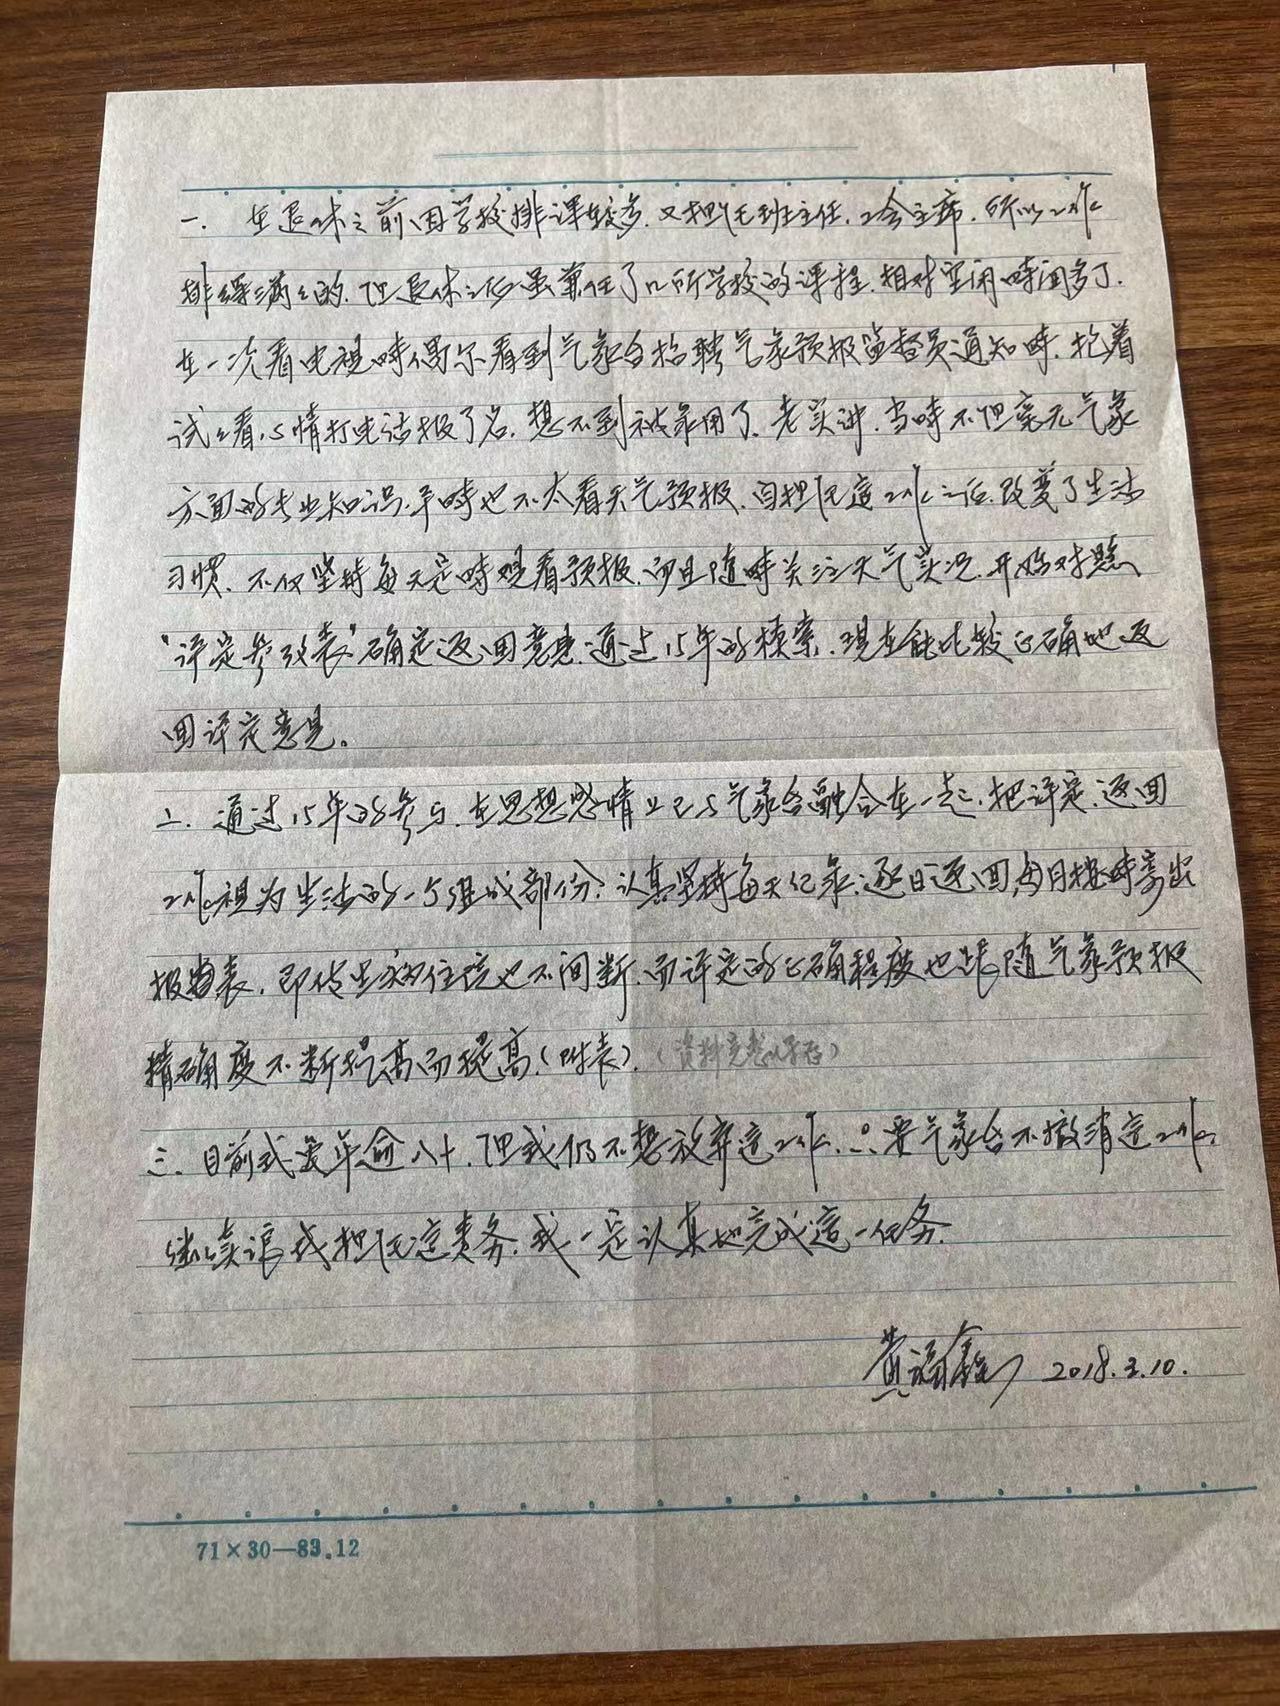 一. 在退休之前因学校排课较多.又担任班主任.工会主席.所以工作
排得满满的.但退休之后虽兼任了几所学校的课程.相对空闲时间多了.
在一次看电视时偶尔看到气象台招聘气象预报监督员通知时.抱着
试试看心情打电话报了名.想不到被录用了.老实讲.当时不但毫无气象
方面的专业知识.平时也不太看天气预报.自担任这工作之后.改变了生活
习惯.不仅坚持每天定时观看预报.而且随时关注天气实况.开始对照
"评定参考表"确定返回意见.通过15年的摸索.现在能比较正确地返
回评定意见。
二. 通过15年的参与.在思想感情上已与气象台融合在一起.把评定.返回
工作视为生活的一个组成部份.认真坚持每天纪录.逐日返回,每月按时寄出
报表.即使生病住院也不间断.而评定的正确程度也随气象预报
精确度不断提高而提高.(附表).
三. 目前我虽年龄八十.但我仍不想放弃这工作.只要气象台不撤消这工作.
继续让我担任这责务.我一定认真地完成这一任务.
黄福鑫 2018.3.10.
71×30—83.12